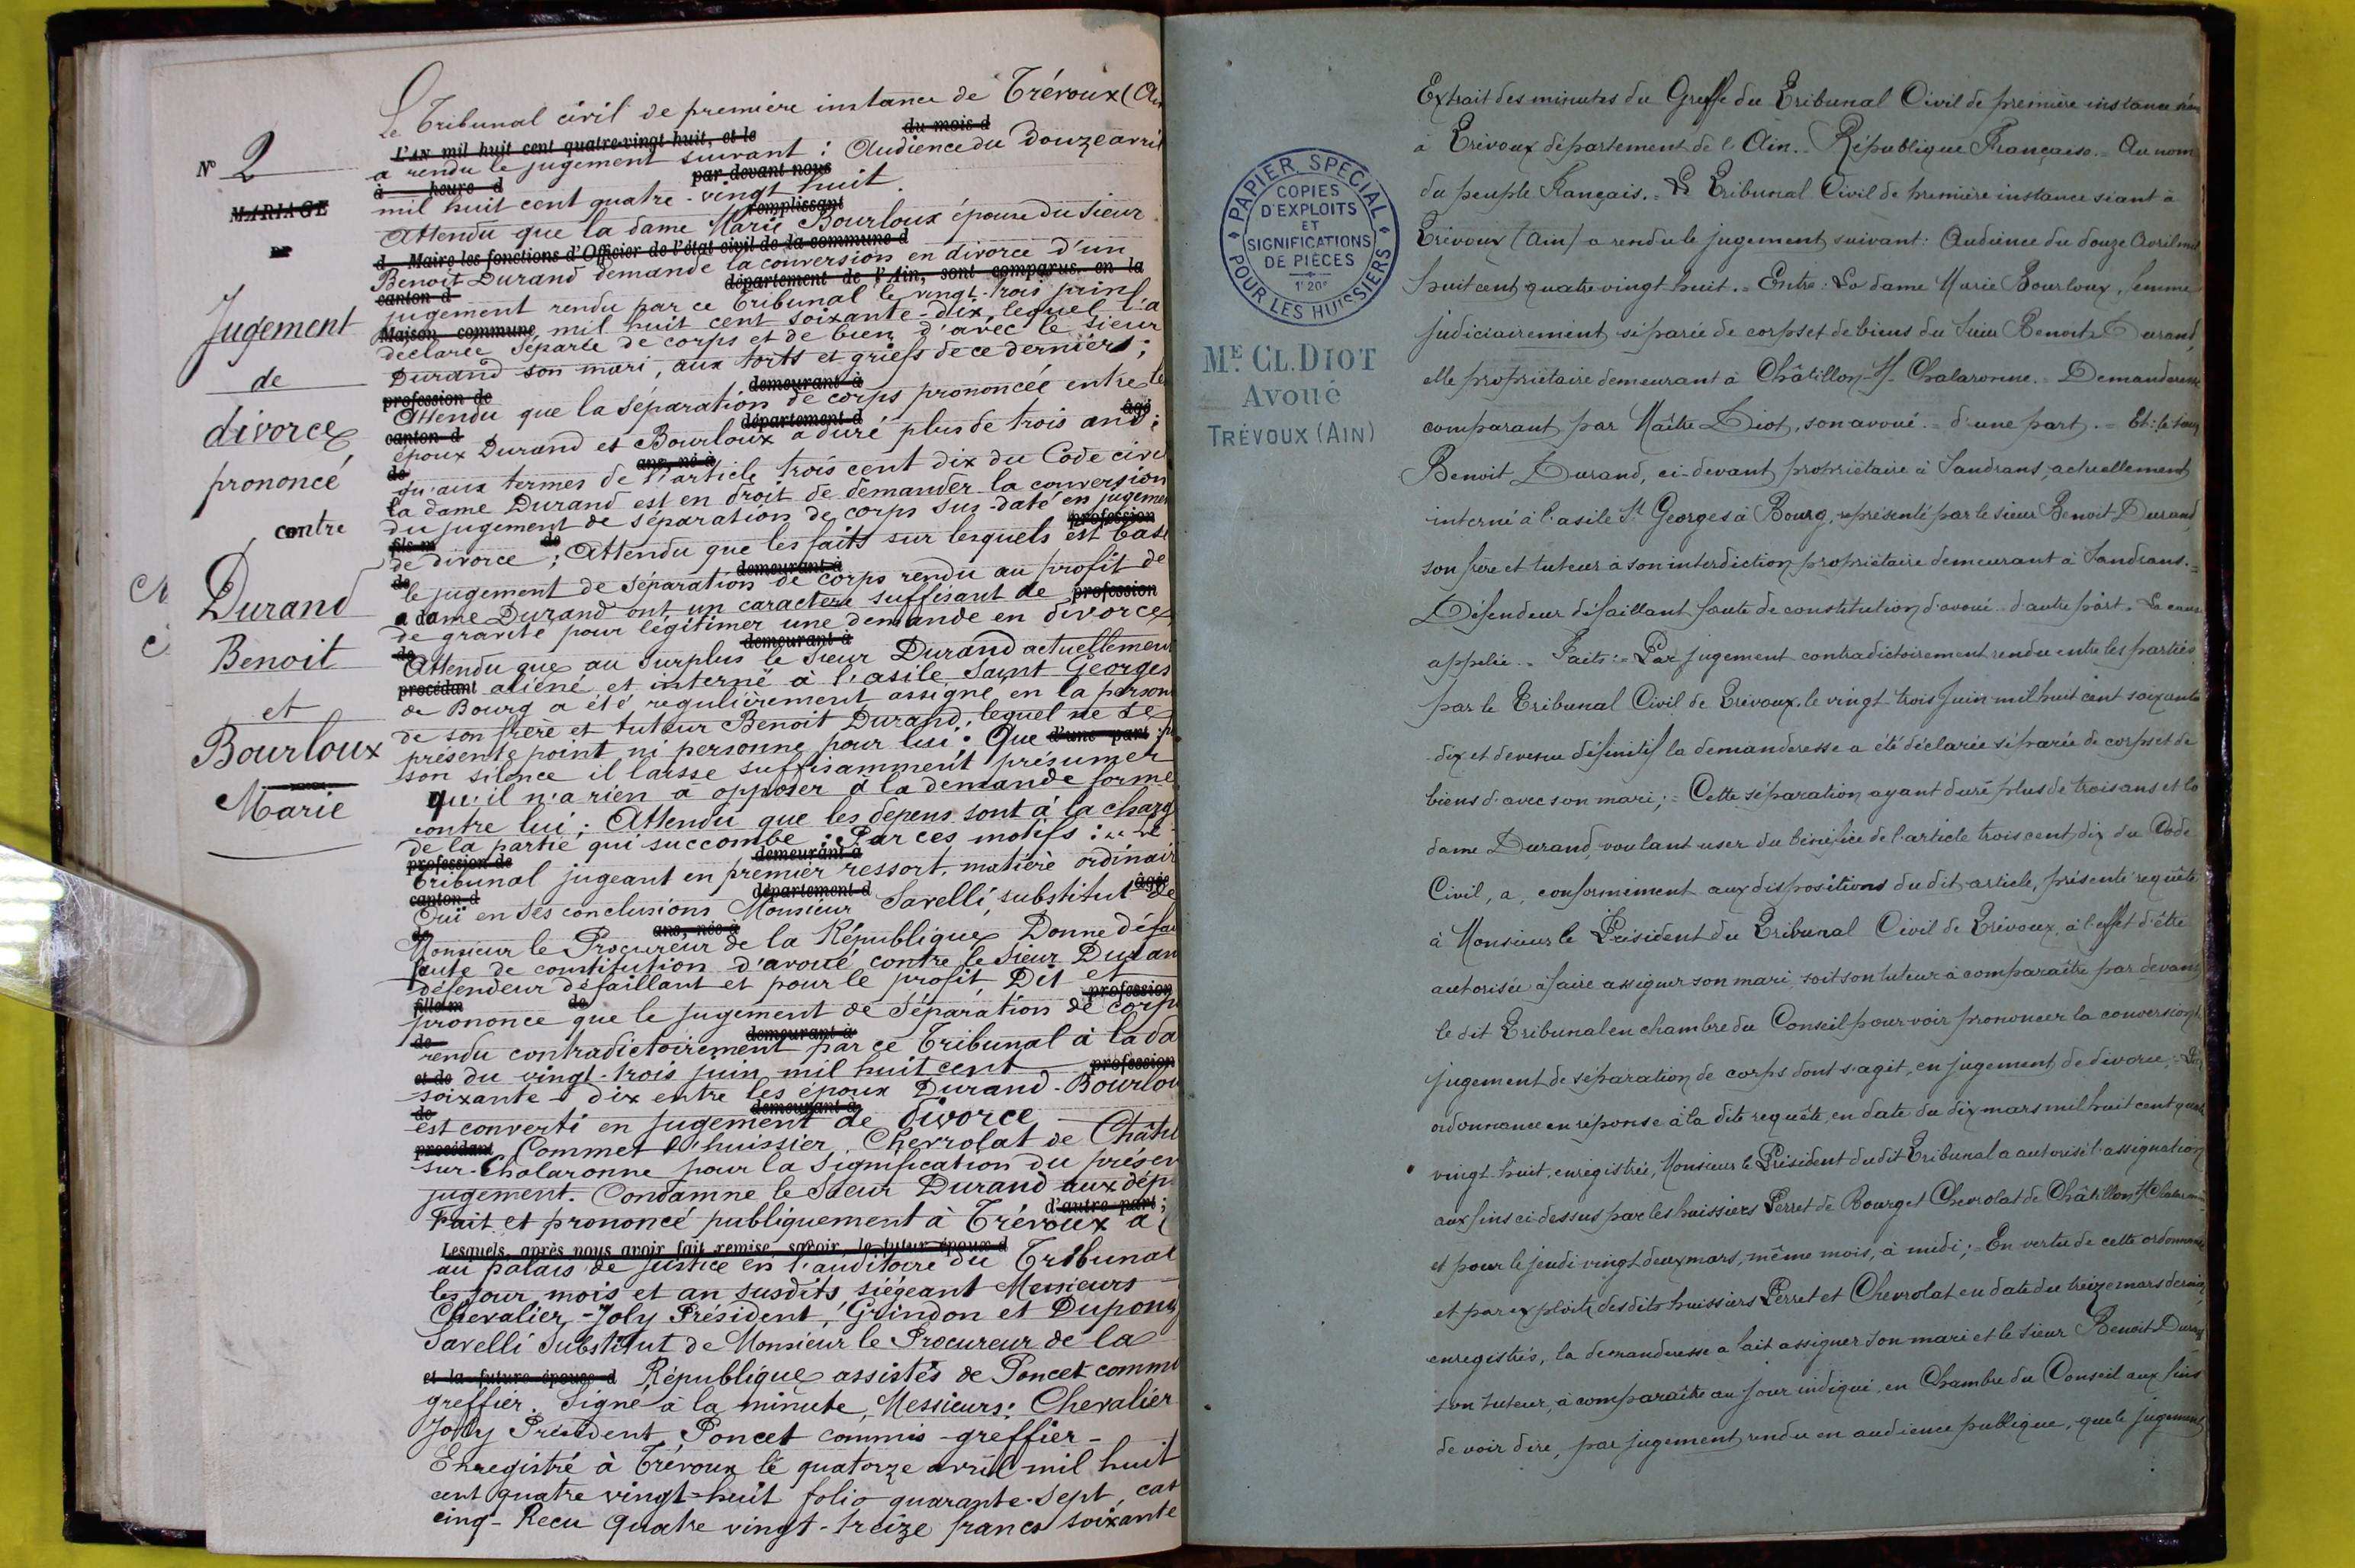 Le Tribunal civil de première instance de Trévoux (Ain
L'AN mil huit cent quatre-vingt-huit, et le du mois d
a rendu le jugement suivant : Audience du Douze avril
à heure d par-devant nous
mil huit cent quatre-vingt huit.
remplissant
Attendu que la dame Marie Bourloux épouse du sieur
d Maire les fonctions d'Officier de l'état civil de la commune d
Benoit Durand demande la conversion en divorce d'un
canton d département de l'Ain, sont comparus en la
jugement rendu par ce Tribunal le vingt-trois juin
Maison commune mil huit cent soixante-dix, lequel l'a
déclarée séparée de corps et de biens d'avec le sieur
Durand son mari, aux torts et griefs de ce derniers ;
profession de demeurant à
Attendu que la séparation de corps prononcée entre les
canton d département d âgé
époux Durand et Bourloux a duré plus de trois ans ;
de ans, né à
qu'aux termes de l'article trois cent dix du Code civil
la dame Durand est en droit de demander la conversion
du jugement de séparation de corps sus-daté en jugemen
fils m de profession
de divorce ; Attendu que les faits sur lesquels est basé
de demeurant à
le jugement de séparation de corps rendu au profit de
a dame Durand ont un caractère suffisant de profession
de gravité pour légitimer une demande en divorce
de demeurant à
Attendu que au surplus le sieur Durand actuellement
procédant aliéné et interné à l'asile Saint Georges
de Bourg a été régulièrement assigné en la person
de son frère et tuteur Benoit Durand ; lequel ne se
présente point ni personne pour lui ; Que d'une part ; p
son silence il laisse suffisamment présumer
qu'il n'a rien à opposer à la demande formé
contre lui ; Attendu que les dépens sont à la charg
de la partie qui succombe ; Par ces motifs : Le
profession de demeurant à
Tribunal jugeant en premier ressort, matière ordinair
canton d département d âgée
Ouï en ses conclusions Monsieur Savelli, substitut de
de ans, née à
Monsieur le Procureur de la République Donne défau
faute de constitution d'avoué contre le Sieur Duran
défendeur défaillant et pour le profit, Dit et
fille m de profession
prononce que le jugement de séparation de corps
de demeurant à
rendu contradictoirement par ce Tribunal à la da
et de du vingt-trois juin mil huit cent profession
soixante-dix entre les époux Durand-Bourlou
de demeurant à
est converti en jugement de divorce
procédant Commet l'huissier Chevrolat de Châtil
sur-Chalaronne pour la signification du présen
jugement. Condamne le Sieur Durand aux dép
d'autre part ;
Fait et prononcé publiquement à Trévoux a
Lesquels, après nous avoir fait remise, savoir, le futur époux d
au palais de justice en l'auditoire du Tribunal
les jour mois et an susdits siégeant Messieurs
Chevalier-Joly Président, Grindon et Dupong
Savelli Substitut de Monsieur le Procureur de la
et la future épouse d République assistés de Poncet commi
greffier. Signé à la minute, Messieurs : Chevalier
Joly Président, Poncet commis-greffier -
Enregistré à Trévoux le quatorze avril mil huit
cent quatre vingt-huit folio quarante-sept, cas
cinq - Reçu quatre vingt-treize francs soixante
N° 2
MARIAGE
DE
Jugement
de
divorce
prononcé
contre
Durand
Benoit
et
Bourloux
Marie
PAPIER SPECIAL
POUR LES HUISSIERS
COPIES
D'EXPLOITS
ET
SIGNIFICATIONS
DE PIÈCES
1F 20C
ME. CL. DIOT
Avoué
TRÉVOUX (AIN)
Extrait des minutes du Greffe du Tribunal Civil de première instance séan
à Trévoux département de l'Ain. - République Française. = Au nom
du peuple Français. = Le Tribunal Civil de première instance séant à
Trévoux (Ain) a rendu le jugement suivant : Audience du douze Avril mil
huit cent quatre vingt huit. = Entre : La dame Marie Bourloux, femme
judiciairement séparée de corps et de biens du Sieur Benoit Durand,
elle propriétaire demeurant à Châtillon-s/-Chalaronne. = Demanderesse
comparant par Maître Diot, son avoué. = d'une part. = Et : le sieur
Benoit Durand, ci-devant propriétaire à Sandrans, actuellement
interné à l'asile St Georges à Bourg, représenté par le sieur Benoit Durand,
son frère et tuteur à son interdiction propriétaire demeurant à Sandrans. =
Défendeur défaillant faute de constitution d'avoué - d'autre part. La cause
appelée. = Faits : = Par jugement contradictoirement rendu entre les parties
par le Tribunal Civil de Trévoux le vingt-trois Juin mil huit cent soixante
dix et devenu définitif la demanderesse a été déclarée séparée de corps et de
biens d'avec son mari ; = Cette séparation ayant duré plus de trois ans et la
dame Durand, voulant user du bénéfice de l'article trois cent dix du Code
Civil, a, conformément aux dispositions du dit article, présenté requête
à Monsieur le Président du Tribunal Civil de Trévoux, à l'effet d'être
autorisée à faire assigner son mari, soit son tuteur à comparaître par devant
le dit Tribunal en chambre du Conseil pour voir prononcer la conversion du
jugement de séparation de corps dont s'agit, en jugement de divorce ; = Par
ordonnance en réponse à la dite requête, en date du dix mars mil huit cent quatre
vingt-huit, enregistrée, Monsieur le Président du dit Tribunal a autorisé l'assignation
aux fins ci-dessus par les huissiers Perret de Bourg et Chevrolat de Châtillon s/Chalaronne
et pour le jeudi vingt deux mars, même mois, à midi ; = En vertu de cette ordonnance
et par exploits des dits huissiers Perret et Chevrolat en date du treize mars dernier,
enregistrés, la demanderesse a fait assigner son mari et le sieur Benoit Durand
son tuteur, à comparaître au jour indiqué, en Chambre du Conseil aux fins
de voir dire, par jugement rendu en audience publique, que le jugement